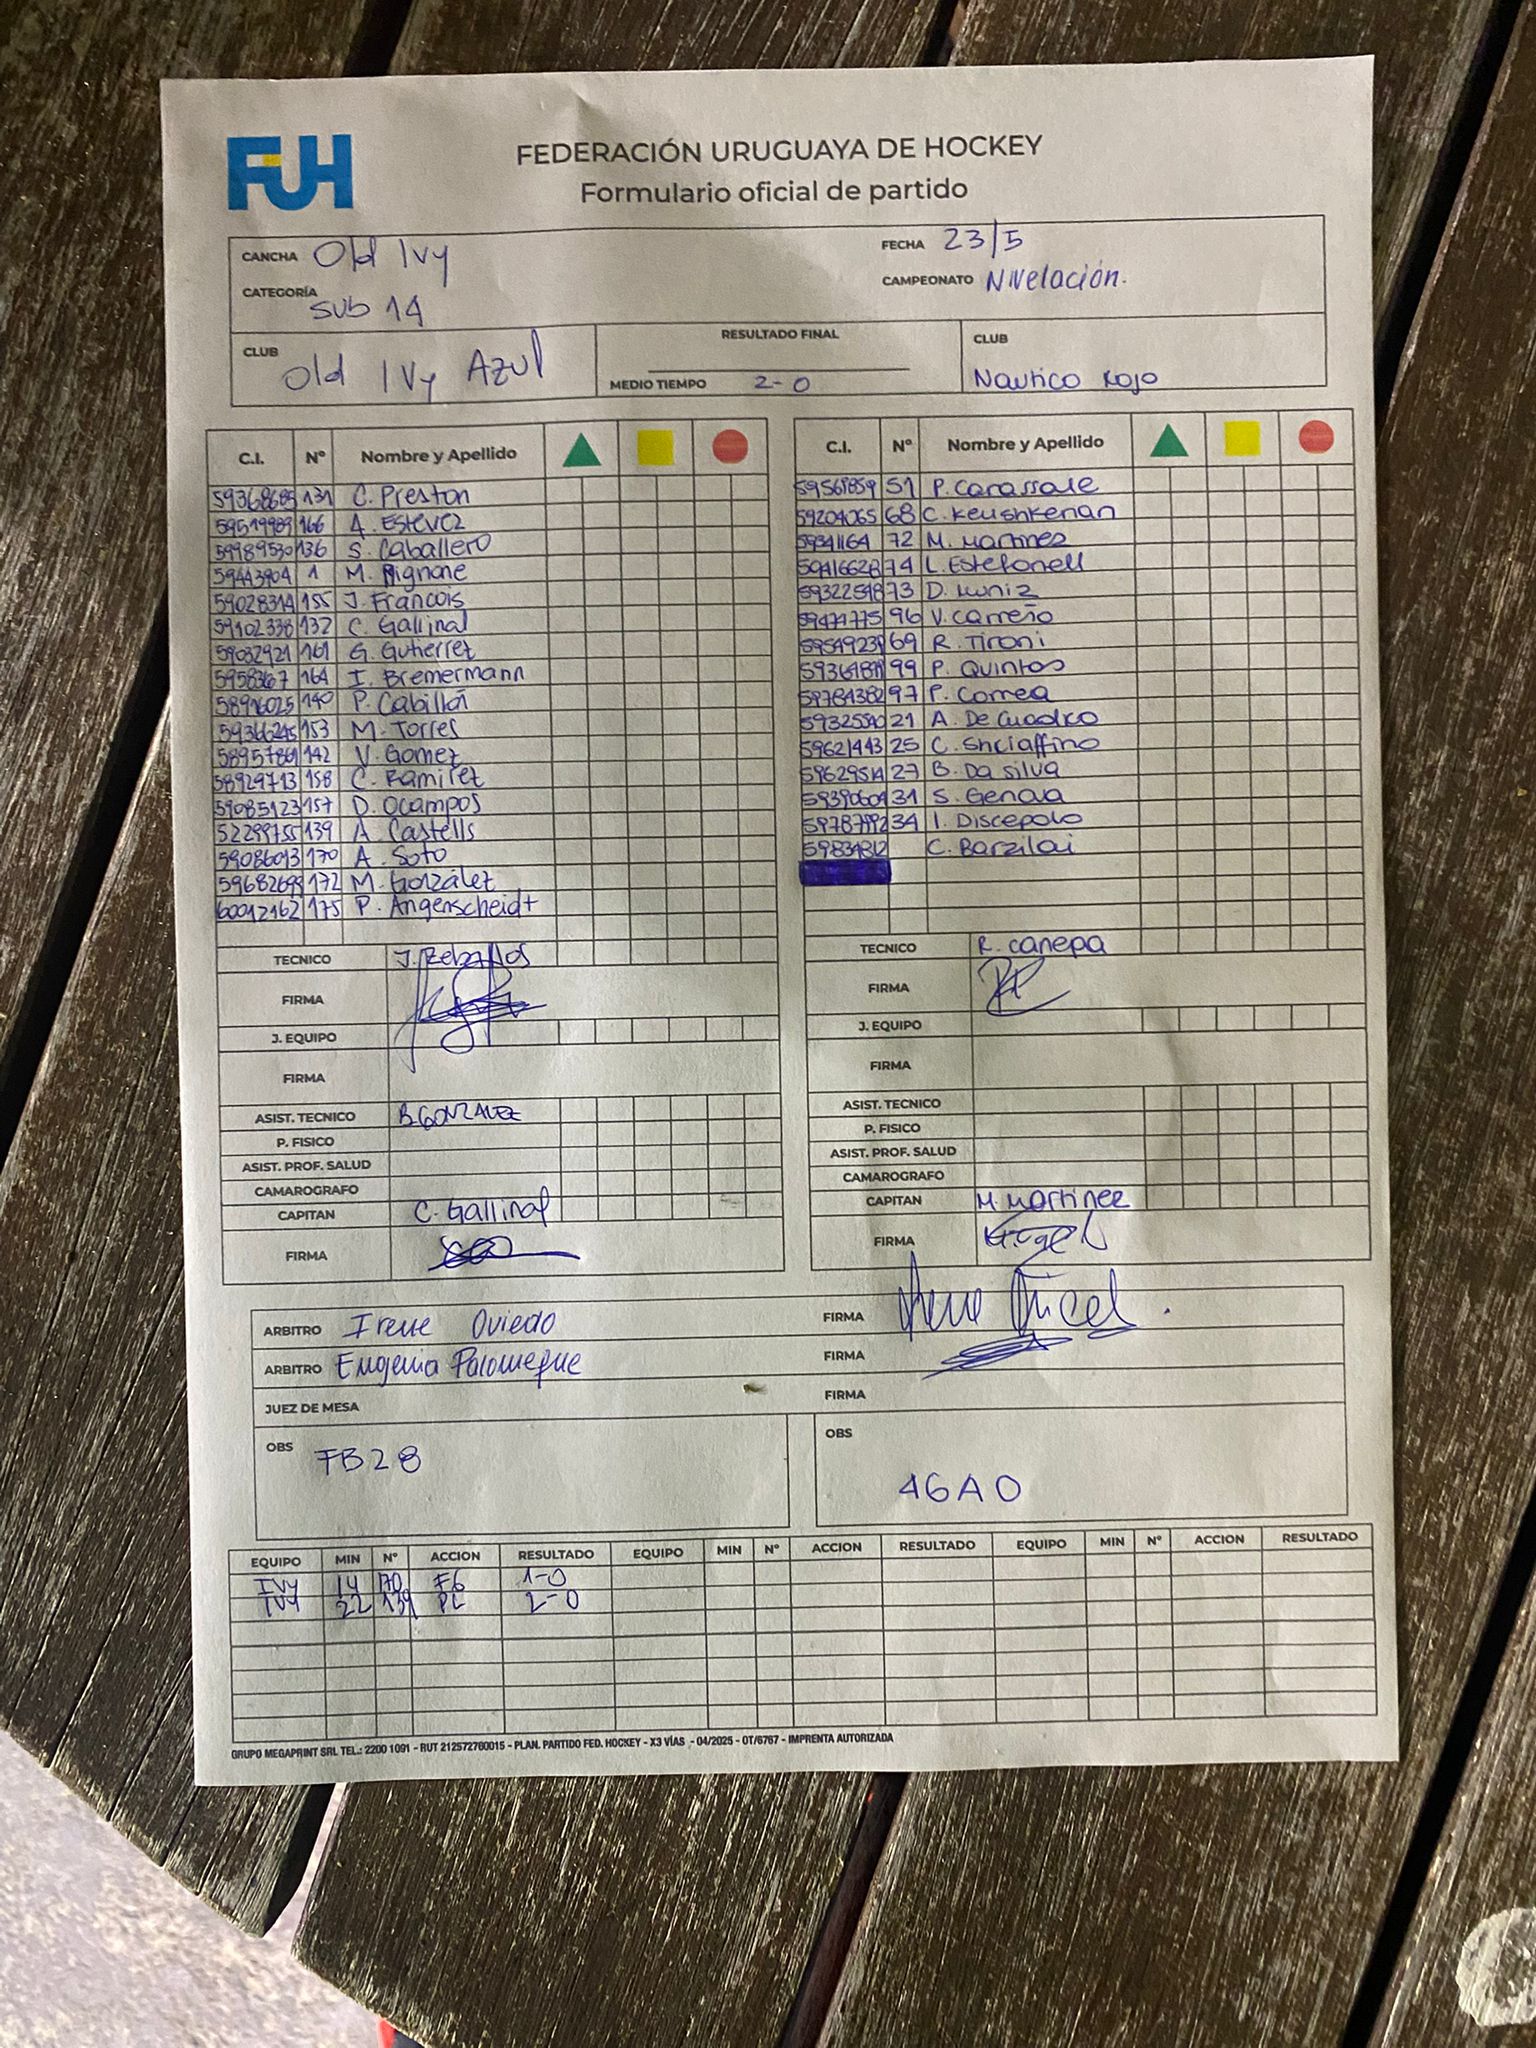 FUH
FEDERACIÓN URUGUAYA DE HOCKEY
Formulario oficial de partido
CANCHA Old Ivy
FECHA 23/5
CATEGORÍA Sub 14
CAMPEONATO Nivelación.
CLUB Old Ivy Azul
RESULTADO FINAL
MEDIO TIEMPO 2-0
CLUB Nautico Rojo
C.I. Nº Nombre y Apellido
59368685 131 C. Preston
59519989 166 A. Estevez
59989530 136 S. Caballero
59443904 1 M. Pignone
59028314 155 J. Francois
59102338 132 C. Gallinal
59032921 161 G. Gutierrez
5958367 164 I. Bremermann
58916025 140 P. Cabillán
59366245 153 M. Torres
58957861 142 V. Gomez
58929713 158 C. Ramirez
59085123 157 D. Ocampos
52299755 139 A. Castells
59086013 170 A. Soto
59682699 172 M. González
60012162 175 P. Angenscheidt
TECNICO J. Reballos
FIRMA
J. EQUIPO
FIRMA
ASIST. TECNICO B. GONZALEZ
P. FISICO
ASIST. PROF. SALUD
CAMAROGRAFO
CAPITAN C. Gallinal
FIRMA
C.I. Nº Nombre y Apellido
59561859 51 P. Carassale
59204065 68 C. Keushkerian
59341164 72 M. Martinez
50416628 74 L. Estefanell
59322598 73 D. Muniz
59474775 96 V. Carreño
59549239 69 R. Tironi
59364811 99 P. Quintas
59784382 97 P. Correa
59325540 21 A. De Cuadro
59621443 25 C. Shciaffino
59629514 27 B. Da Silva
59390604 31 S. Genova
59787992 34 I. Discepolo
59834312 C. Barzilai
TECNICO R. Canepa
FIRMA
J. EQUIPO
FIRMA
ASIST. TECNICO
P. FISICO
ASIST. PROF. SALUD
CAMAROGRAFO
CAPITAN M. Martinez
FIRMA
ARBITRO Irene Oviedo FIRMA
ARBITRO Eugenia Palomeque FIRMA
JUEZ DE MESA FIRMA
OBS FB28
OBS 46A0
EQUIPO MIN Nº ACCION RESULTADO EQUIPO MIN Nº ACCION RESULTADO EQUIPO MIN Nº ACCION RESULTADO
IVY 14 170 FG 1-0
IVY 22 139 PC 2-0
GRUPO MEGAPRINT SRL TEL.: 2200 1091 - RUT 212572780015 - PLAN. PARTIDO FED. HOCKEY - X3 VÍAS - 04/2025 - OT/6767 - IMPRENTA AUTORIZADA